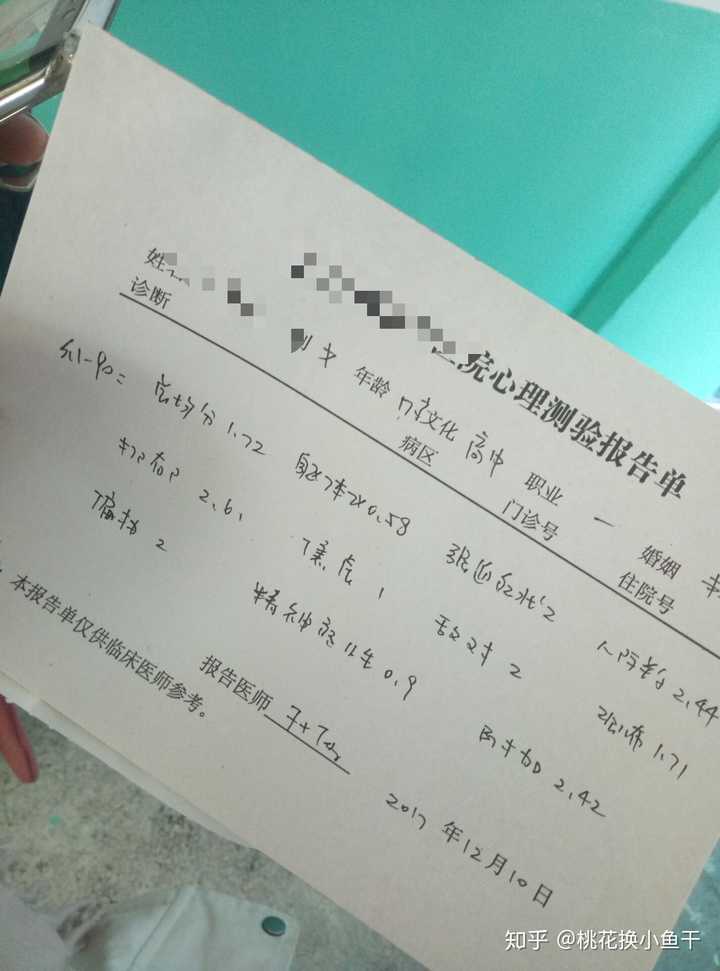 院心理测验报告单
姓 别 女 年龄 17岁 文化 高中 职业 一 婚姻
诊断 病区 门诊号 住院号
scl-90: 总均分 1.72 躯体化 0.58 强迫症状 2 人际 2.44
抑郁 2.61 焦虑 1 敌对 2 恐怖 1.71
偏执 2 精神病性 0.9 附加 2.42
本报告单仅供临床医师参考。 报告医师
2017 年 12 月 10 日
知乎 @桃花换小鱼干